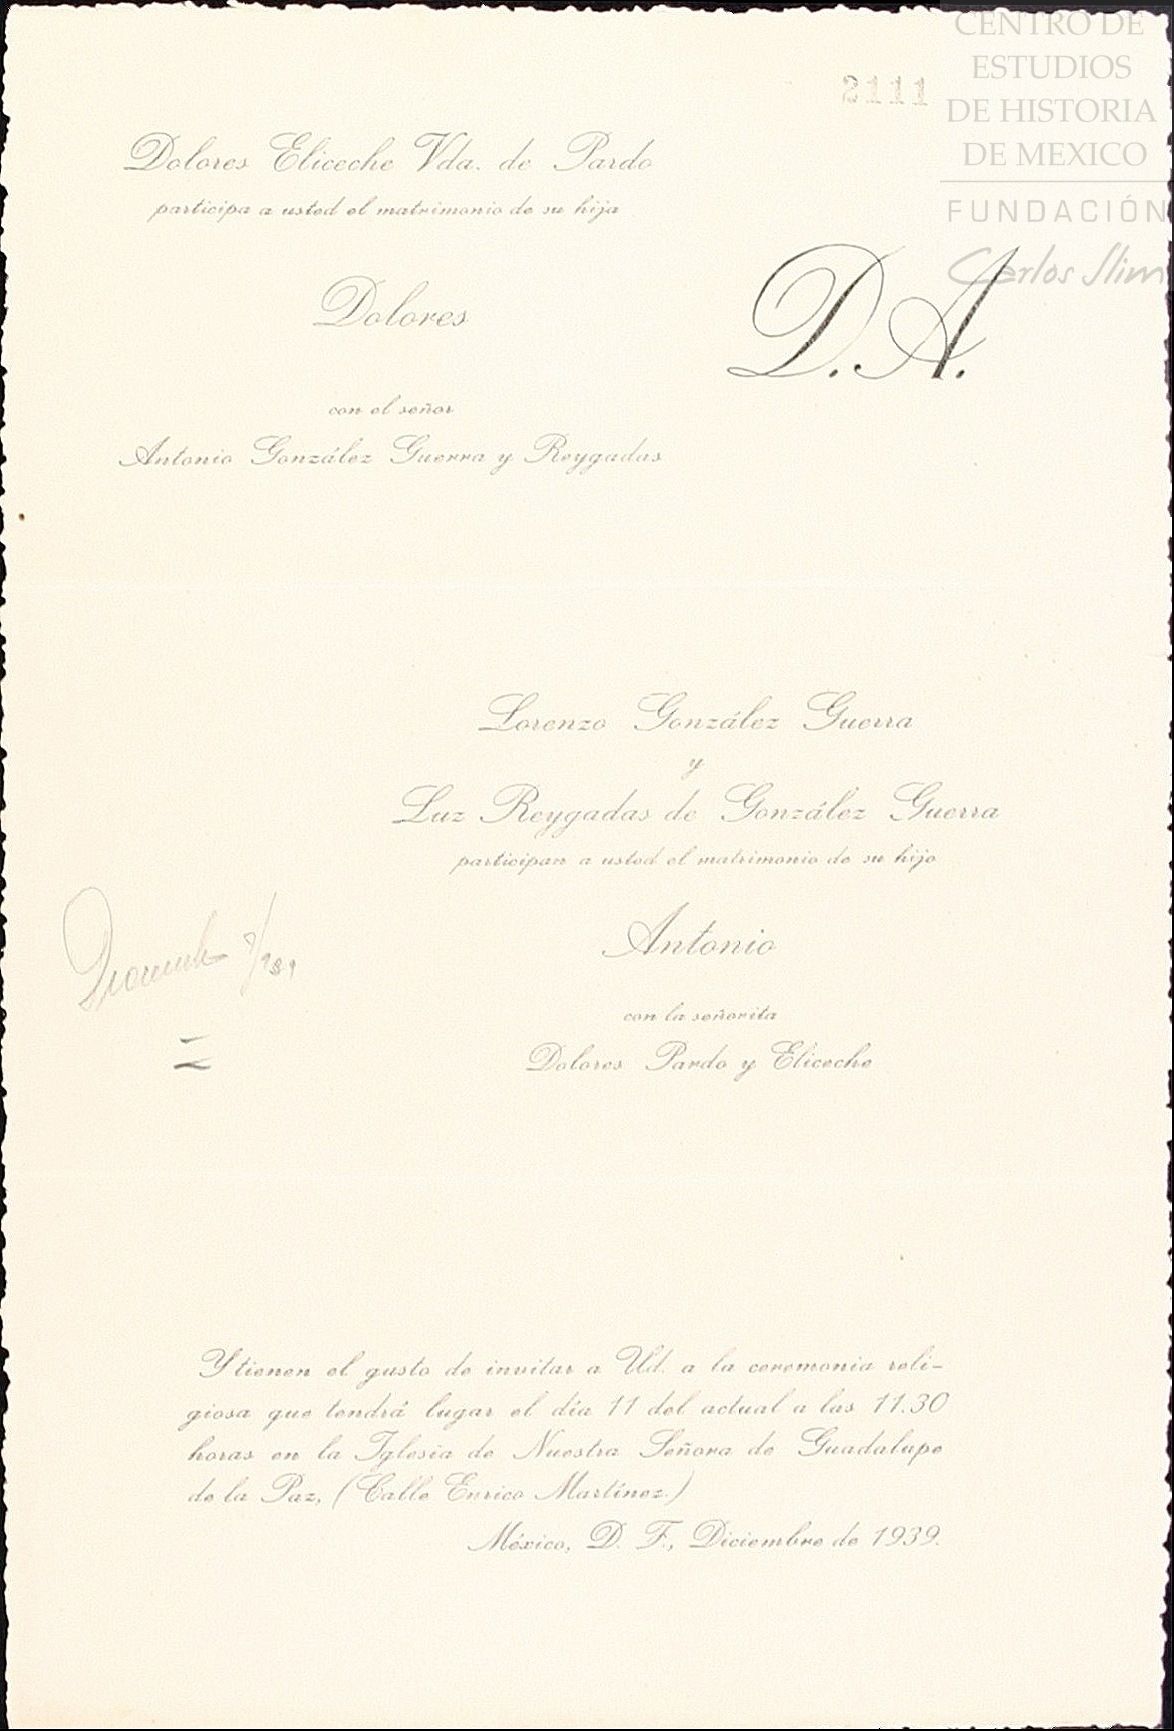 CENTRO DE
ESTUDIOS
DE HISTORIA
DE MEXICO
FUNDACIÓN
Carlos Slim
2111
Dolores Eliceche Vda. de Pardo
participa a usted el matrimonio de su hija
Dolores
con el señor
Antonio González Guerra y Reygadas
D. A.
Lorenzo González Guerra
y
Luz Reygadas de González Guerra
participan a usted el matrimonio de su hijo
Antonio
con la señorita
Dolores Pardo y Eliceche
Y tienen el gusto de invitar a Ud. a la ceremonia reli-
giosa que tendrá lugar el día 11 del actual a las 11.30
horas en la Iglesia de Nuestra Señora de Guadalupe
de la Paz, (Calle Enrico Martínez.)
México, D. F., Diciembre de 1939.